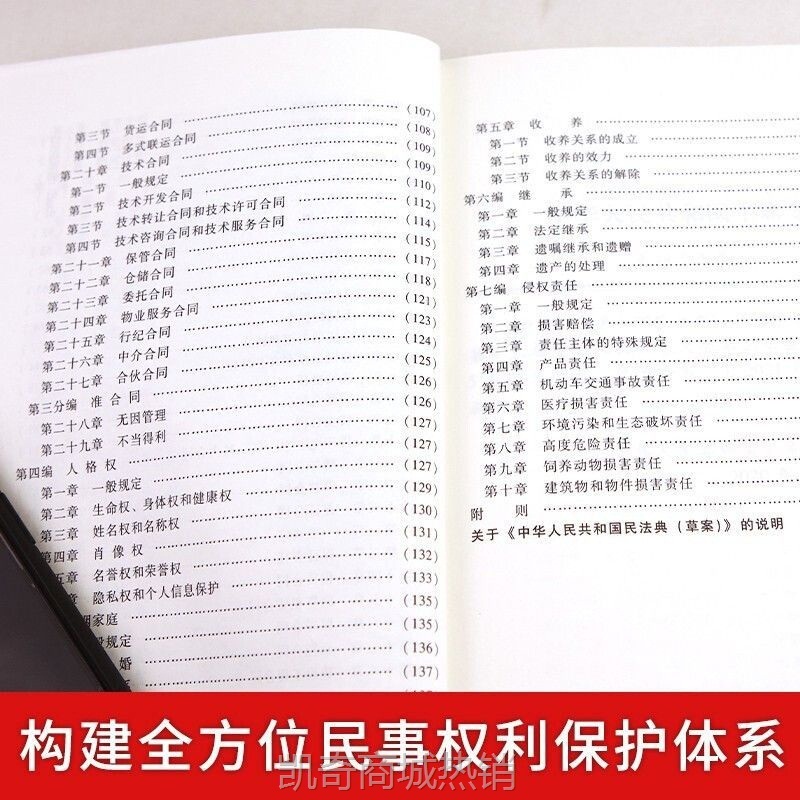 第三节 货运合同 (107)
第四节 多式联运合同 (108)
第二十章 技术合同 (109)
第一节 一般规定 (109)
第二节 技术开发合同 (110)
第三节 技术转让合同和技术许可合同 (112)
第四节 技术咨询合同和技术服务合同 (114)
第二十一章 保管合同 (115)
第二十二章 仓储合同 (117)
第二十三章 委托合同 (118)
第二十四章 物业服务合同 (121)
第二十五章 行纪合同 (123)
第二十六章 中介合同 (124)
第二十七章 合伙合同 (125)
第三分编 准合同 (126)
第二十八章 无因管理 (126)
第二十九章 不当得利 (127)
第四编 人格权 (127)
第一章 一般规定 (127)
第二章 生命权、身体权和健康权 (129)
第三章 姓名权和名称权 (130)
第四章 肖像权 (131)
五章 名誉权和荣誉权 (132)
章 隐私权和个人信息保护 (133)
家庭 (135)
规定 (135)
婚 (136)
(137)
第五章 收养
第一节 收养关系的成立
第二节 收养的效力
第三节 收养关系的解除
第六编 继承
第一章 一般规定
第二章 法定继承
第三章 遗嘱继承和遗赠
第四章 遗产的处理
第七编 侵权责任
第一章 一般规定
第二章 损害赔偿
第三章 责任主体的特殊规定
第四章 产品责任
第五章 机动车交通事故责任
第六章 医疗损害责任
第七章 环境污染和生态破坏责任
第八章 高度危险责任
第九章 饲养动物损害责任
第十章 建筑物和物件损害责任
附则
关于《中华人民共和国民法典（草案）》的说明
构建全方位民事权利保护体系
凯奇商城热销